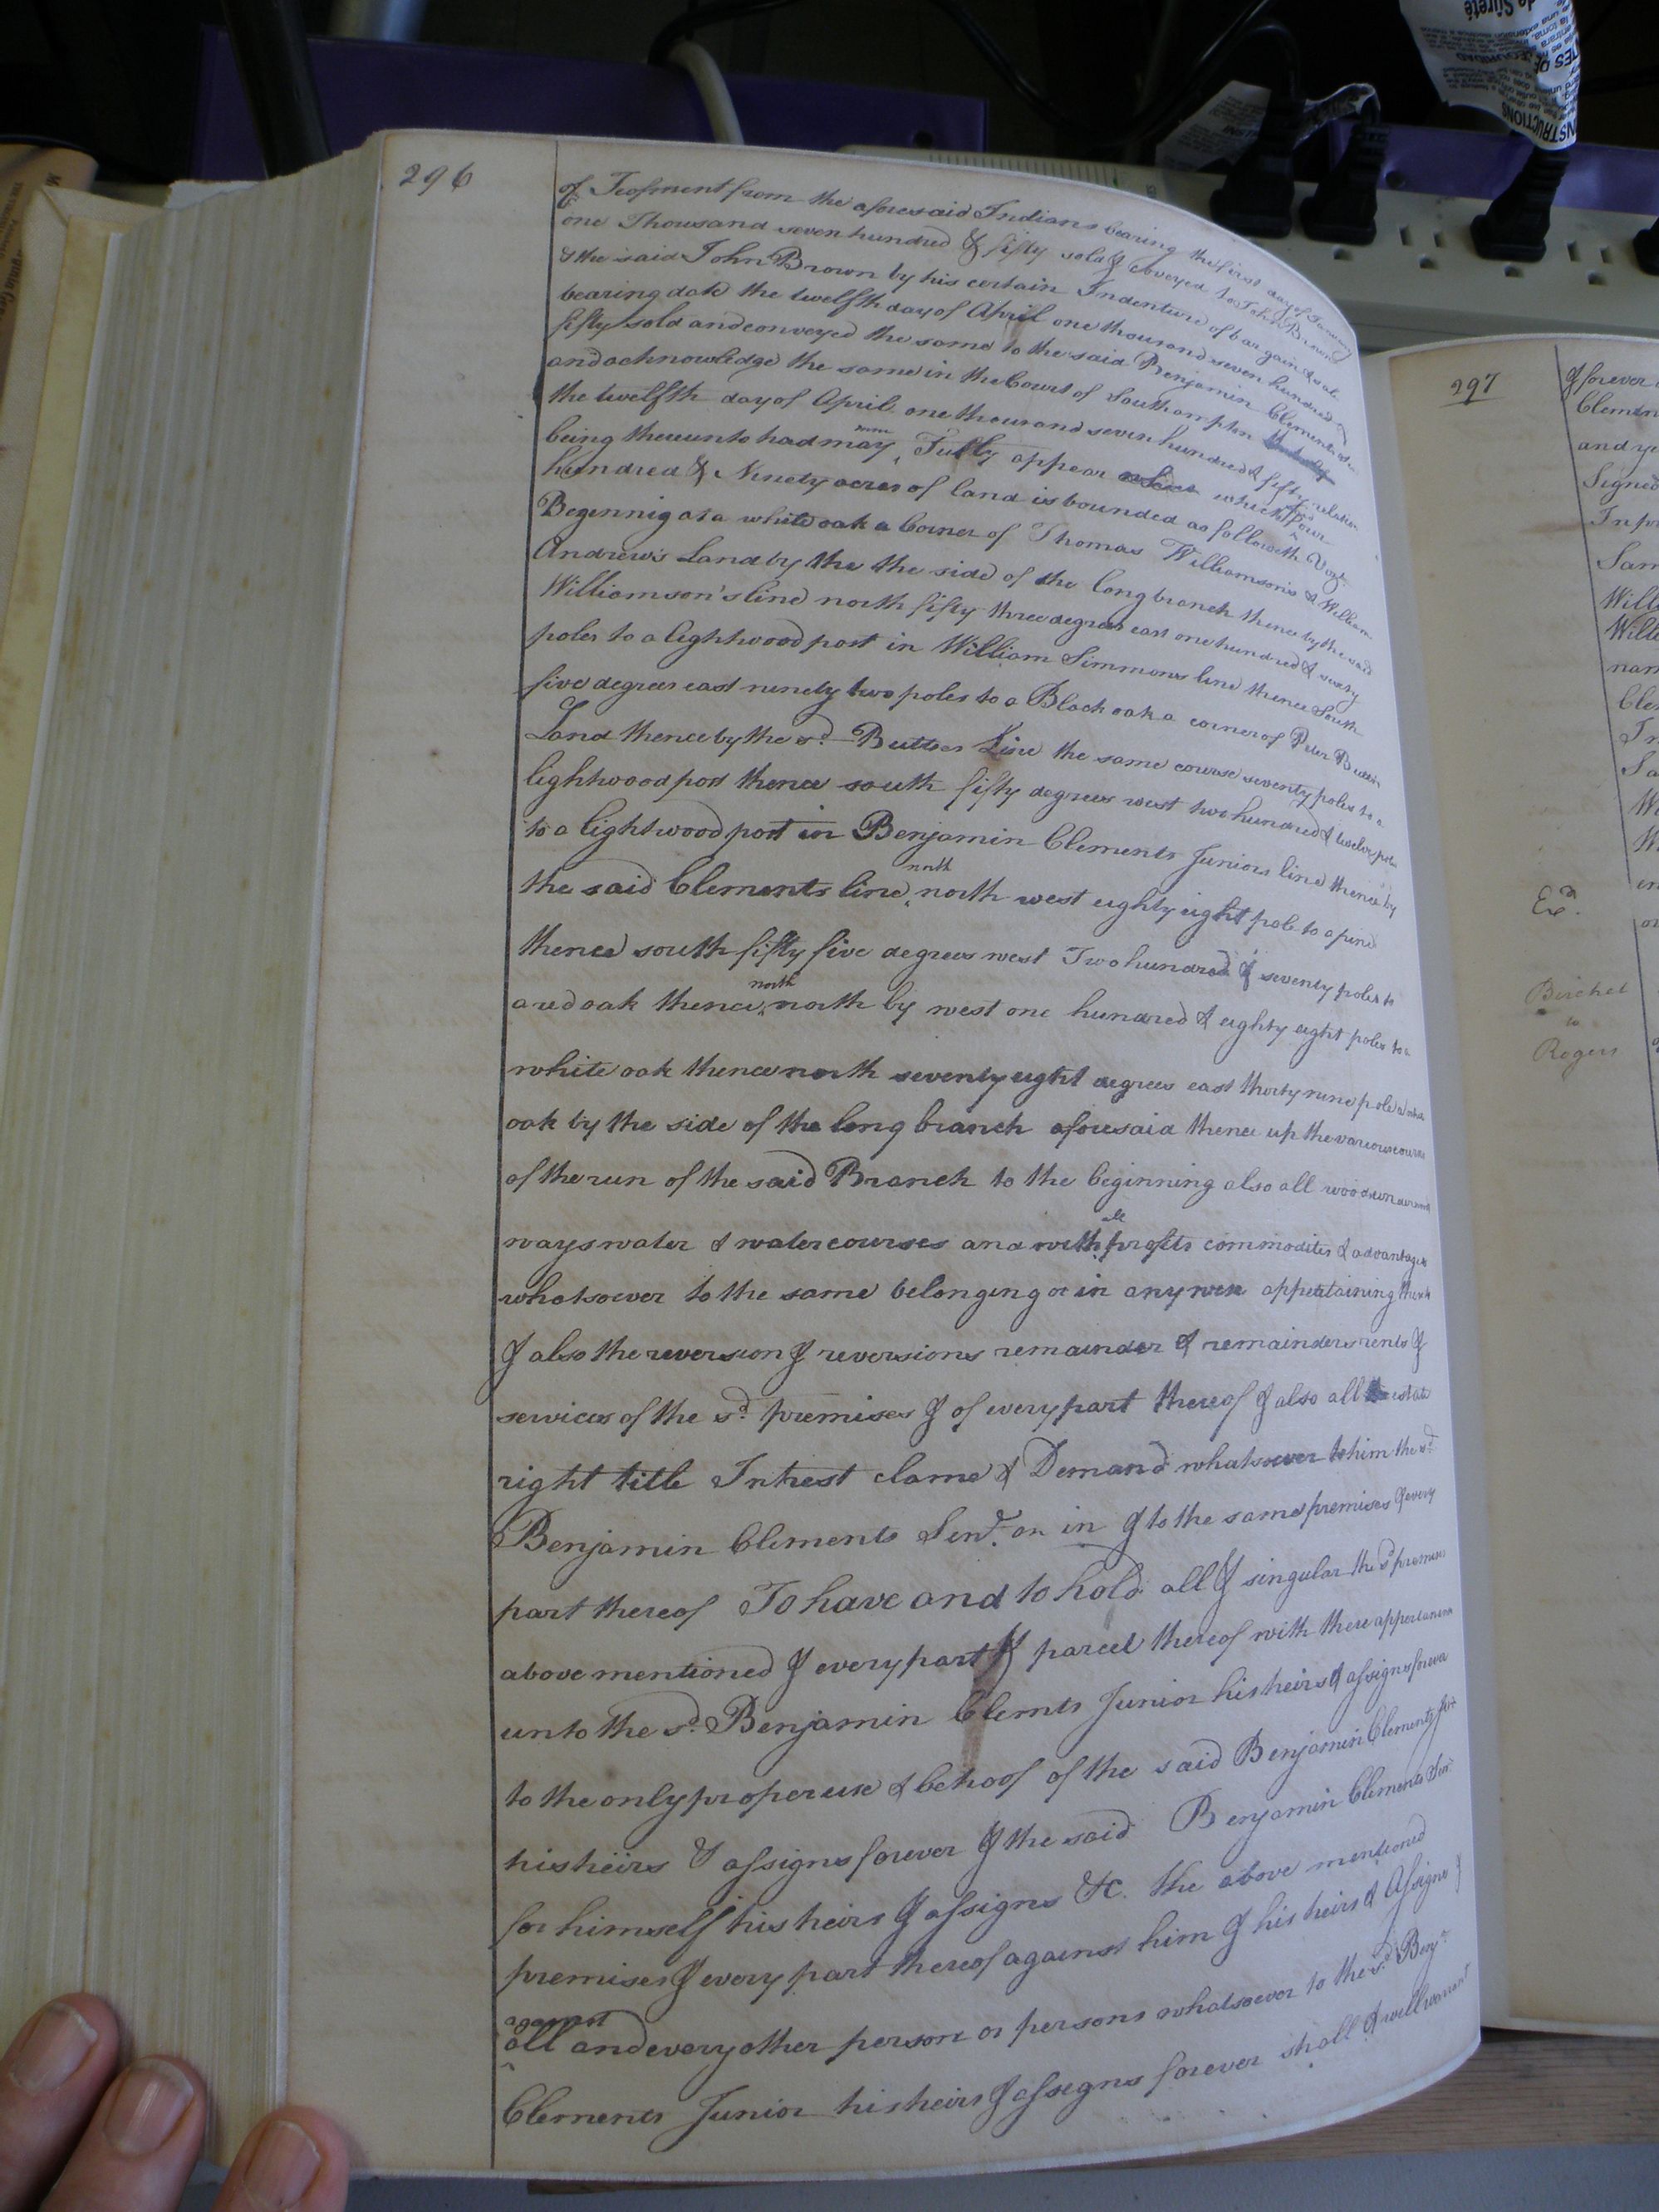 296
of Feofment from the aforesaid Indians bearing the first day of January
one Thousand seven hundred & fifty sold & conveyed to John Brown
& the said John Brown by his certain Indenture of bargain & sale
bearing date the twelfth day of April one thousand seven hundred &
fifty sold and conveyed the same to the said Benjamin Clements
and acknowledge the same in the Court of Southampton
the twelfth day of April one thousand seven hundred & fifty relation
being thereunto had may Fully appear which four
hundred & Ninety acres of land is bounded as followeth Vizt
Begennig at a white oak a Corner of Thomas Williamson's & William
Andrew's Land by the the side of the long branch thence by the said
Williamson's line north fifty three degrees east one hundred & seventy
poles to a lightwood post in William Simmons line thence South
five degrees east ninety two poles to a Black oak a corner of Peter Butler
Land thence by the sd. Butlers Line the same course seventy poles to a
lightwood post thence south fifty degrees west two hundred & twelve poles
to a lightwood post in Benjamin Clements Juniors line thence by
the said Clements line north north west eighty eight pole to a pine
thence south fifty five degrees west Two hundred & seventy poles to
a red oak thence north north by west one hundred & eighty eight poles to a
white oak thence north seventy eight degrees east thirty nine pole a white
oak by the side of the long branch aforesaid thence up the various courses
of the run of the said Branch to the beginning also all woods
ways water & watercourses and with all profits commodites & advantages
whatsoever to the same belonging or in any wise appertaining
& also the reversion & reversions remainder & remainders rents &
services of the sd. premises & of every part thereof & also all the estate
right title Intrest clame & Demand whatsoever to him the sd.
Benjamin Clements Senr. on in & to the same premises & every
part thereof To have and to hold all & singular the sd premises
above mentioned & every part & parcel thereof with there appertanences
unto the sd. Benjamin Clemts Junior his heirs & assigns forever
to the only proper use & behoof of the said Benjamin Clements Jur
his heirs & assigns forever & the said Benjamin Clements Senr
for himself his heirs & assigns &c. the above mentioned
premises & every part thereof against him & his heirs & Assigns &
against all and every other person or persons whatsoever to the sd. Benjn
Clements Junior his heirs & assigns forever shall & will warrant
297
& forever
and
Signed
Exd.
Birchet
to
Rogers